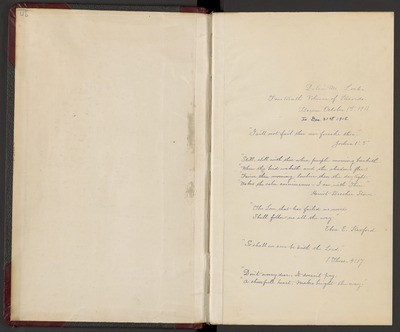 Fourteenth Volume of
Begun October 1st 1915
To Dec 31st 1915
"I will not fail thee nor forsake thee"
Joshua 1:5
"Still, still with Thee when purple morning breaketh
When the bird waketh and the shadows flee;
Fairer than morning, lovelier than the daylight
Dawns the sweet consciousness I am with Thee
Harriet Beecher Stowe
"The Love that has failed us never
Shall follow us all the way"
Eben E. Rexford
"So shall we ever be with the Lord"
I Thess. 4:17
"Don't worry dear. It doesn't pay
A cheerful heart makes bright the way"